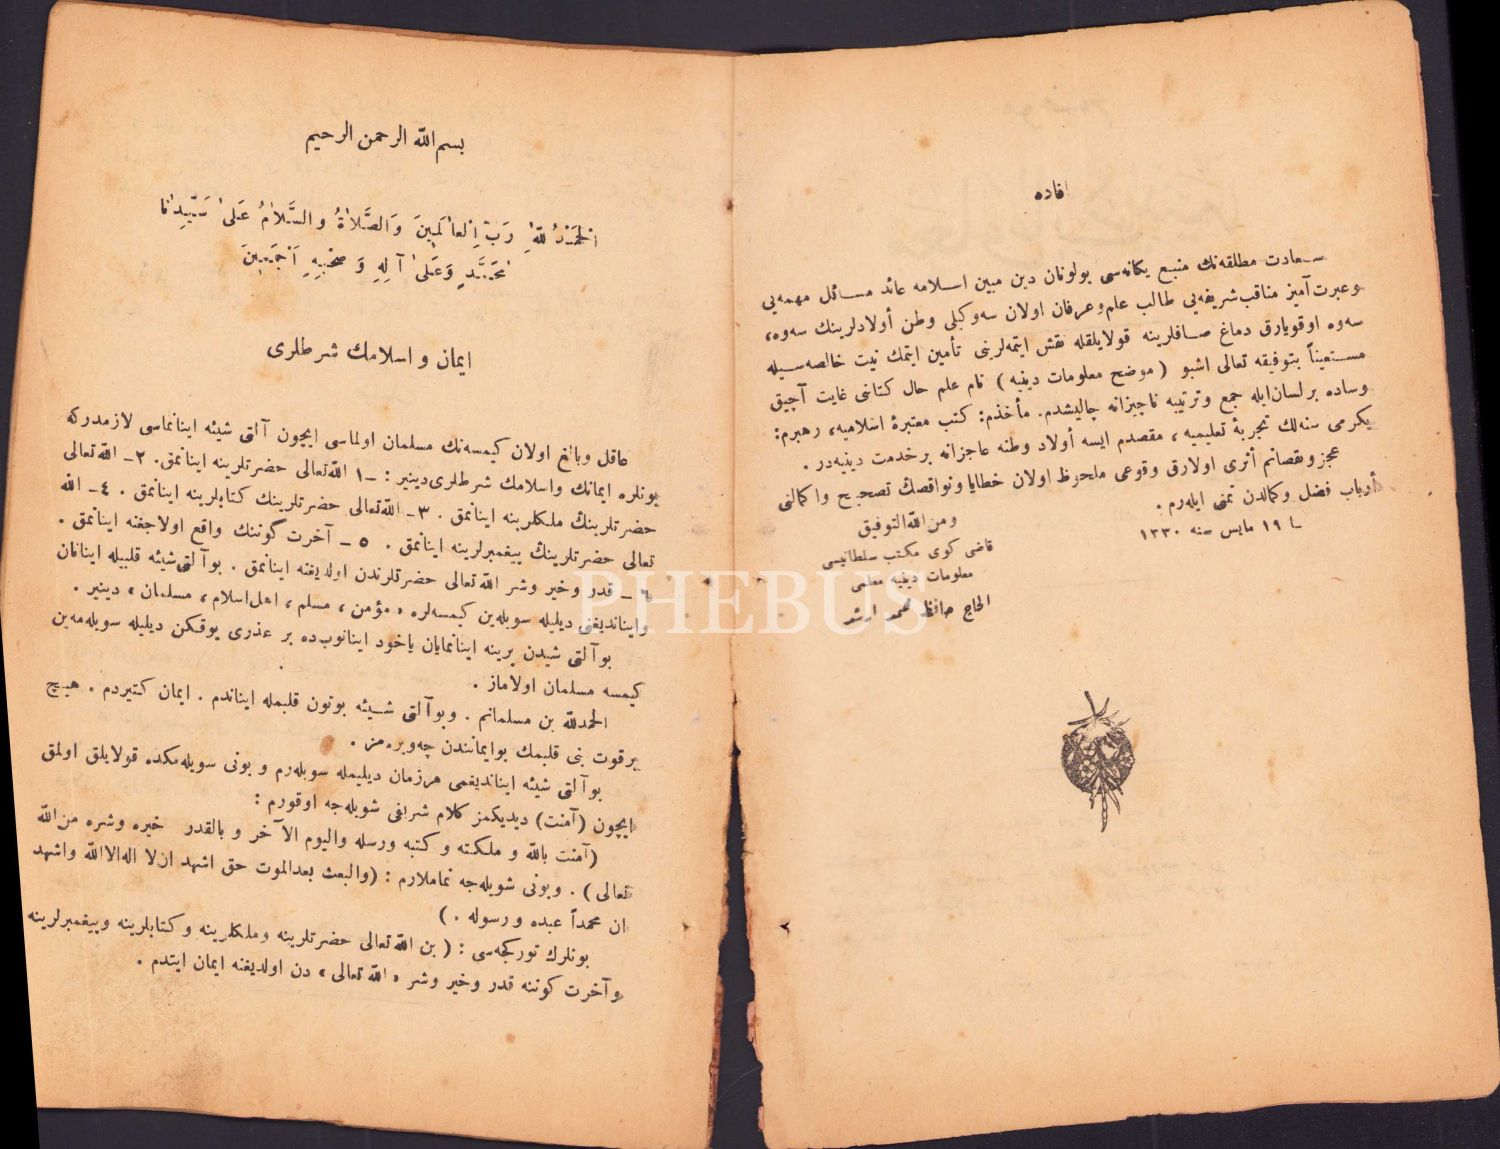 افاده
سعادت مطلقه‌نك منبع یكانه‌سی بولونان دین مبین اسلامه عائد مسائل مهمه‌یی
وعبرت‌آمیز مناقب شریفه‌یی طالب علم وعرفان اولان سه‌وكیلی وطن أولادلرینك سه‌وه،
سه‌وه اوقویارق دماغ صافلرینه قولایلقله نقش ایتمه‌لرینی تأمین ایتمك نیت خالصه‌سیله
مستعیناً بتوفیقه تعالی اشبو (موضح معلومات دینیه) نام علم حال كتابنی غایت آچیق
وساده برلسان ایله جمع وترتیبه ناچیزانه چالیشدم. مأخذم: كتب معتبرهٔ اسلامیه، رهبرم:
یكرمی سنه‌لك تجربهٔ تعلیمیه، مقصدم ایسه أولاد وطنه عاجزانه برخدمت دینیه‌در.
عجز ونقصانم أثری اولارق وقوعی ملحوظ اولان خطایا ونواقصك تصحیح واكمالنی
أرباب فضل وكمالدن تمنی ایله‌رم.
ومن الله التوفیق
١٩ مایس سنه ١٣٣٠
قاضی كوی مكتب سلطانیسی
معلومات دینیه معلمی
الحاج حافظ محمد ارشد
بسم الله الرحمن الرحیم
اَلْحَمْدُ لِلّٰهِ رَبِّ الْعَالَمِینَ وَالصَّلَاةُ وَالسَّلَامُ عَلَى سَیِّدِنَا
مُحَمَّدٍ وَعَلَى آلِهِ وَ صَحْبِهِ اَجْمَعِینَ
ایمان و اسلامك شرطلری
عاقل وبالغ اولان كیمسه‌نك مسلمان اولماسی ایچون آلتی شیئه اینانماسی لازمدركه
بونلره ایمانك واسلامك شرطلری دینیر: ١ــ الله تعالی حضرتلرینه اینانمق. ٢ــ الله تعالی
حضرتلرینك ملكلرینه اینانمق. ٣ــ الله تعالی حضرتلرینك كتابلرینه اینانمق. ٤ــ الله
تعالی حضرتلرینك پیغمبرلرینه اینانمق. ٥ــ آخرت گوننك واقع اولاجغنه اینانمق.
٦ــ قدر وخیر وشر الله تعالی حضرتلرندن اولدیغنه اینانمق. بو آلتی شیئه قلبیله اینانان
وایناندیغنی دیلیله سویله‌ین كیمسه‌لره «مؤمن، مسلم، اهل اسلام، مسلمان» دینیر.
بو آلتی شیدن برینه اینانمایان یاخود اینانوب‌ده بر عذری یوقكن دیلیله سویله‌مه‌ین
كیمسه مسلمان اولاماز.
الحمدلله بن مسلمانم. وبو آلتی شیئه بوتون قلبمله ایناندم. ایمان كتیردم. هیچ
برقوت بنی قلبمك بو ایمانندن چه‌ویره‌مز.
بو آلتی شیئه ایناندیغمی هرزمان دیلیمله سویله‌رم و بونی سویله‌مكده قولایلق اولمق
ایچون (آمنت) دیدیكمز كلام شریفی شویله‌جه اوقورم:
(آمنت بالله و ملئكته و كتبه ورسله والیوم الآخر و بالقدر خیره وشره من الله
تعالی). وبونی شویله‌جه تماملارم: (والبعث بعدالموت حق اشهد ان لا اله الا الله واشهد
ان محمداً عبده ورسوله.)
بونلرك توركجه‌سی: (بن الله تعالی حضرتلرینه وملكلرینه وكتابلرینه وپیغمبرلرینه
وآخرت كوننه قدر وخیر وشر «الله تعالی» دن اولدیغنه ایمان ایتدم.
PHEBUS